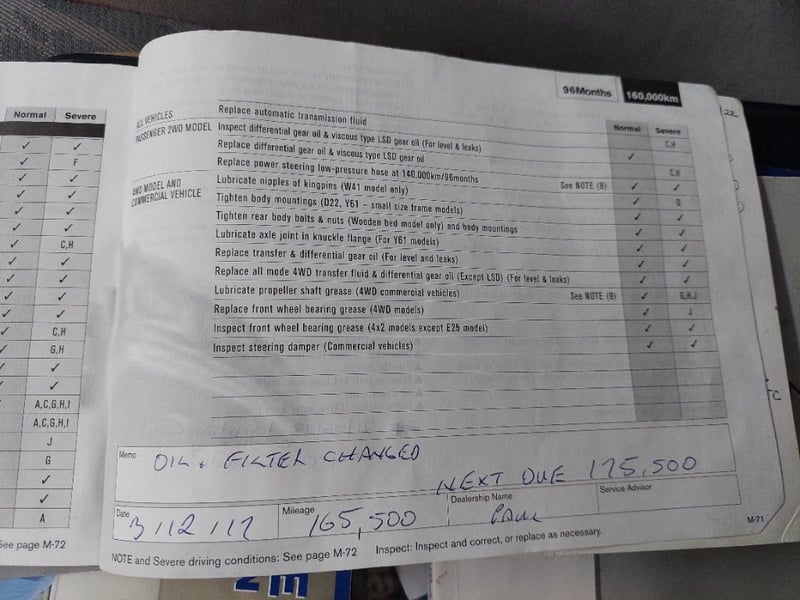 96Months 160,000km
Normal Severe
ALL VEHICLES Replace automatic transmission fluid C,H
PASSENGER 2WD MODEL Inspect differential gear oil & viscous type LSD gear oil (For level & leaks) ✓
Replace differential gear oil & viscous type LSD gear oil C,H
Replace power steering low-pressure hose at 140,000km/96months See NOTE (8) ✓ ✓
4WD MODEL AND COMMERCIAL VEHICLE Lubricate nipples of kingpins (W41 model only) ✓ G
Tighten body mountings (D22, Y61 – small size frame models) ✓ ✓
Tighten rear body bolts & nuts (Wooden bed model only) and body mountings ✓ ✓
Lubricate axle joint in knuckle flange (For Y61 models) ✓ ✓
Replace transfer & differential gear oil (For level and leaks) ✓ ✓
Replace all mode 4WD transfer fluid & differential gear oil (Except LSD) (For level & leaks) ✓ ✓
Lubricate propeller shaft grease (4WD commercial vehicles) See NOTE (9) ✓ G,H,J
Replace front wheel bearing grease (4WD models) ✓ J
Inspect front wheel bearing grease (4x2 models except E25 model) ✓ ✓
Inspect steering damper (Commercial vehicles) ✓ ✓
Memo OIL + FILTER CHANGED
NEXT DUE 175,500
Date 3/12/17 Mileage 165,500 Dealership Name PAUL Service Advisor
NOTE and Severe driving conditions: See page M-72 Inspect: Inspect and correct, or replace as necessary. M-71
Normal Severe
✓ ✓
✓ F
✓ ✓
✓ ✓
✓ ✓
✓ C,H
✓ ✓
✓ ✓
✓ ✓
✓ C,H
✓ G,H
✓ ✓
✓ ✓
A,C,G,H,I
A,C,G,H,I
J
G
✓
✓
A
See page M-72
22